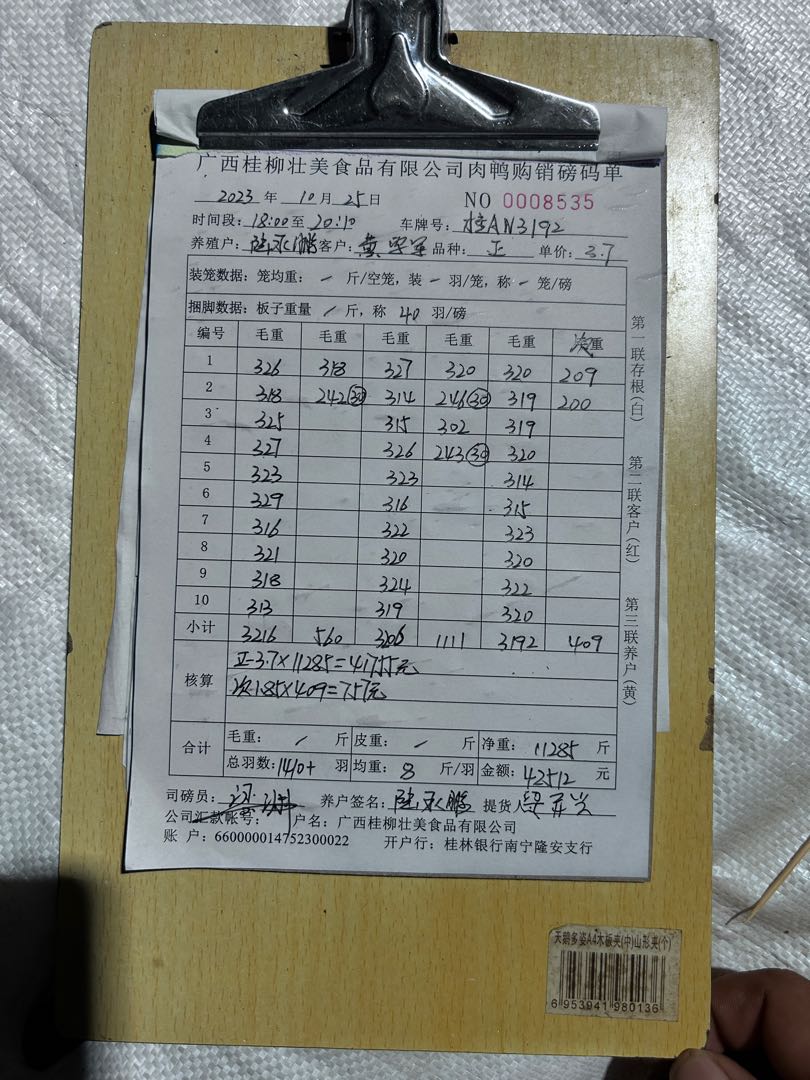 广西桂柳壮美食品有限公司肉鸭购销磅码单
2023 年 10 月 25 日 NO 0008535
时间段: 18:00 至 20:10 车牌号: 桂AN3192
养殖户: 陆永鹏 客户: 黄 品种: 正 单价: 3.7
装笼数据: 笼均重: / 斤/空笼, 装 - 羽/笼, 称 - 笼/磅
捆脚数据: 板子重量 / 斤, 称 40 羽/磅
编号 毛重 毛重 毛重 毛重 毛重 次重
1 326 318 327 320 320 209
2 318 242(30) 314 246(30) 319 200
3 325 315 302 319
4 327 326 243(30) 320
5 323 323 314
6 329 316 315
7 316 322 323
8 321 320 320
9 318 324 322
10 313 319 320
小计 3216 560 3206 1111 3192 409
核算 正-3.7×11285=41755元
次1.85×409=757元
合计 毛重: / 斤 皮重: / 斤 净重: 11285 斤
总羽数: 1410+ 羽 均重: 8 斤/羽 金额: 42512 元
司磅员: 养户签名: 陆永鹏 提货人
公司汇款帐号: 户名: 广西桂柳壮美食品有限公司
账 户: 660000014752300022 开户行: 桂林银行南宁隆安支行
第一联存根(白)
第二联客户(红)
第三联养户(黄)
天鹅多姿A4木板夹(中)山形夹(个)
6 953941 980136